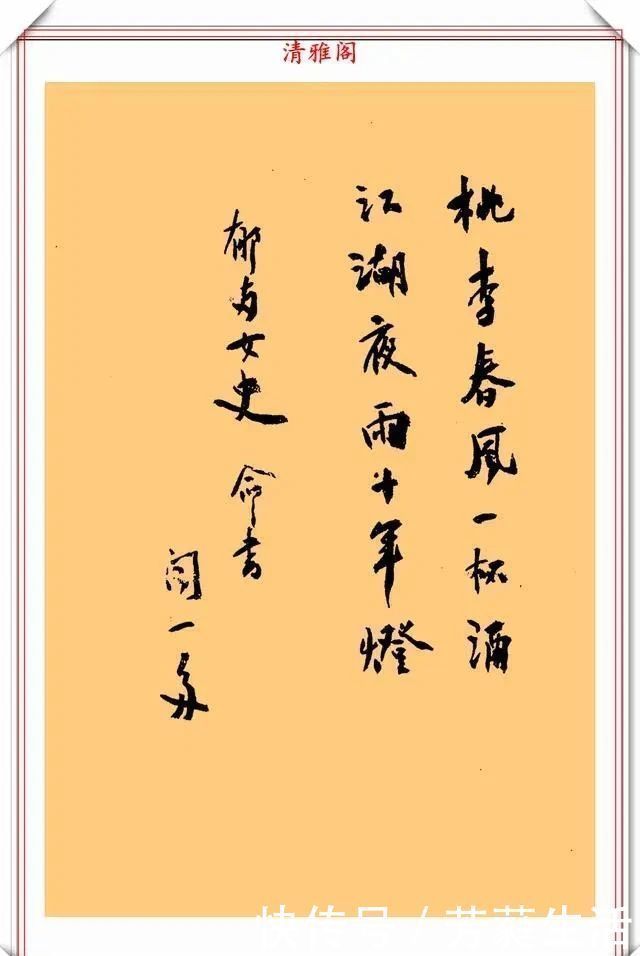 清雅阁
桃李春風一杯酒
江湖夜雨十年燈
郁女史 命書
聞一多
快传号 / 艿萚生活